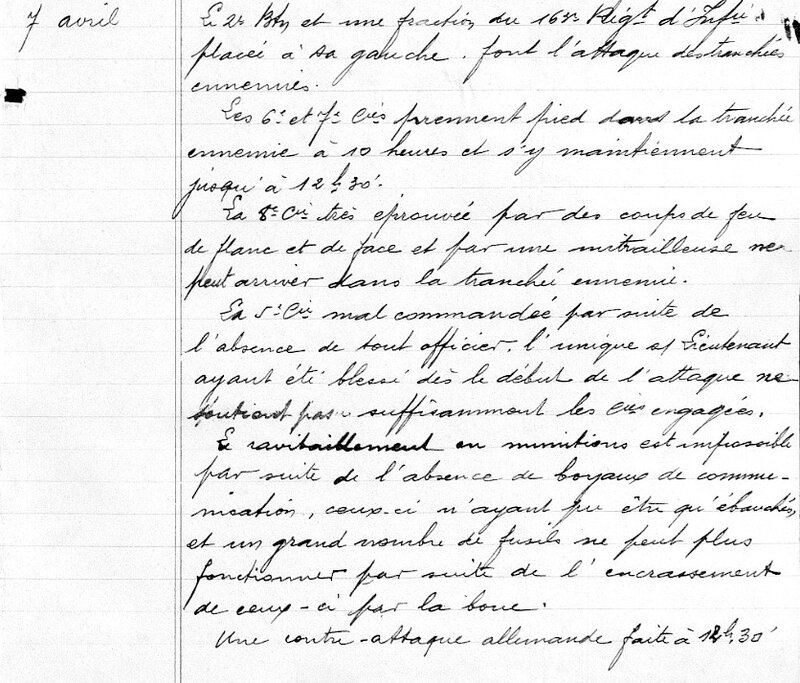 7 avril
Le 2e Btn et une fraction du 163e Régt d'Infie
placée à sa gauche, font l'attaque des tranchées
ennemies.
Les 6e et 7e Cies prennent pied dans la tranchée
ennemie à 10 heures et s'y maintiennent
jusqu'à 12h30'.
La 8e Cie très éprouvée par des coups de feu
de flanc et de face et par une mitrailleuse ne
peut arriver dans la tranchée ennemie.
La 5e Cie mal commandée par suite de
l'absence de tout officier, l'unique s/Lieutenant
ayant été blessé dès le début de l'attaque ne
soutient pas suffisamment les Cies engagées.
Le ravitaillement en munitions est impossible
par suite de l'absence de boyaux de commu-
nication, ceux-ci n'ayant pu être qu'ébauchés,
et un grand nombre de fusils ne peut plus
fonctionner par suite de l'encrassement
de ceux-ci par la boue.
Une contre-attaque allemande faite à 12h.30'